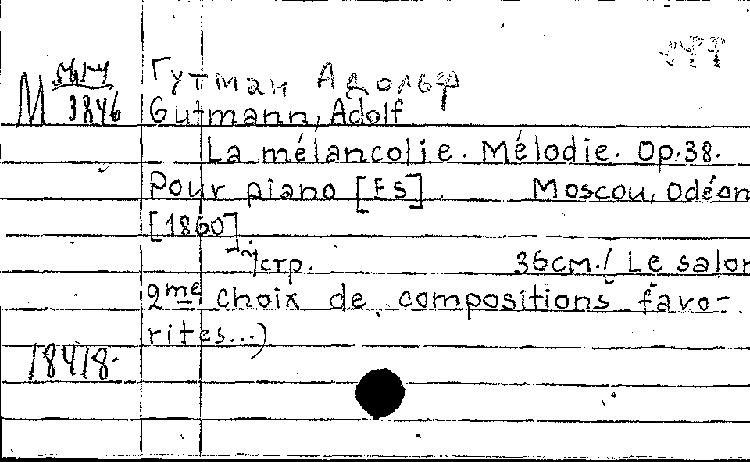 Гутман Адольф
М 3846
Gutmann, Adolf
La mélancolie. Mélodie. Op. 38.
Pour piano [Es]. Moscou, Odéon
[1860]
стр. 36см. / Le salon
2me choix de compositions favo-
rites...)
18418.